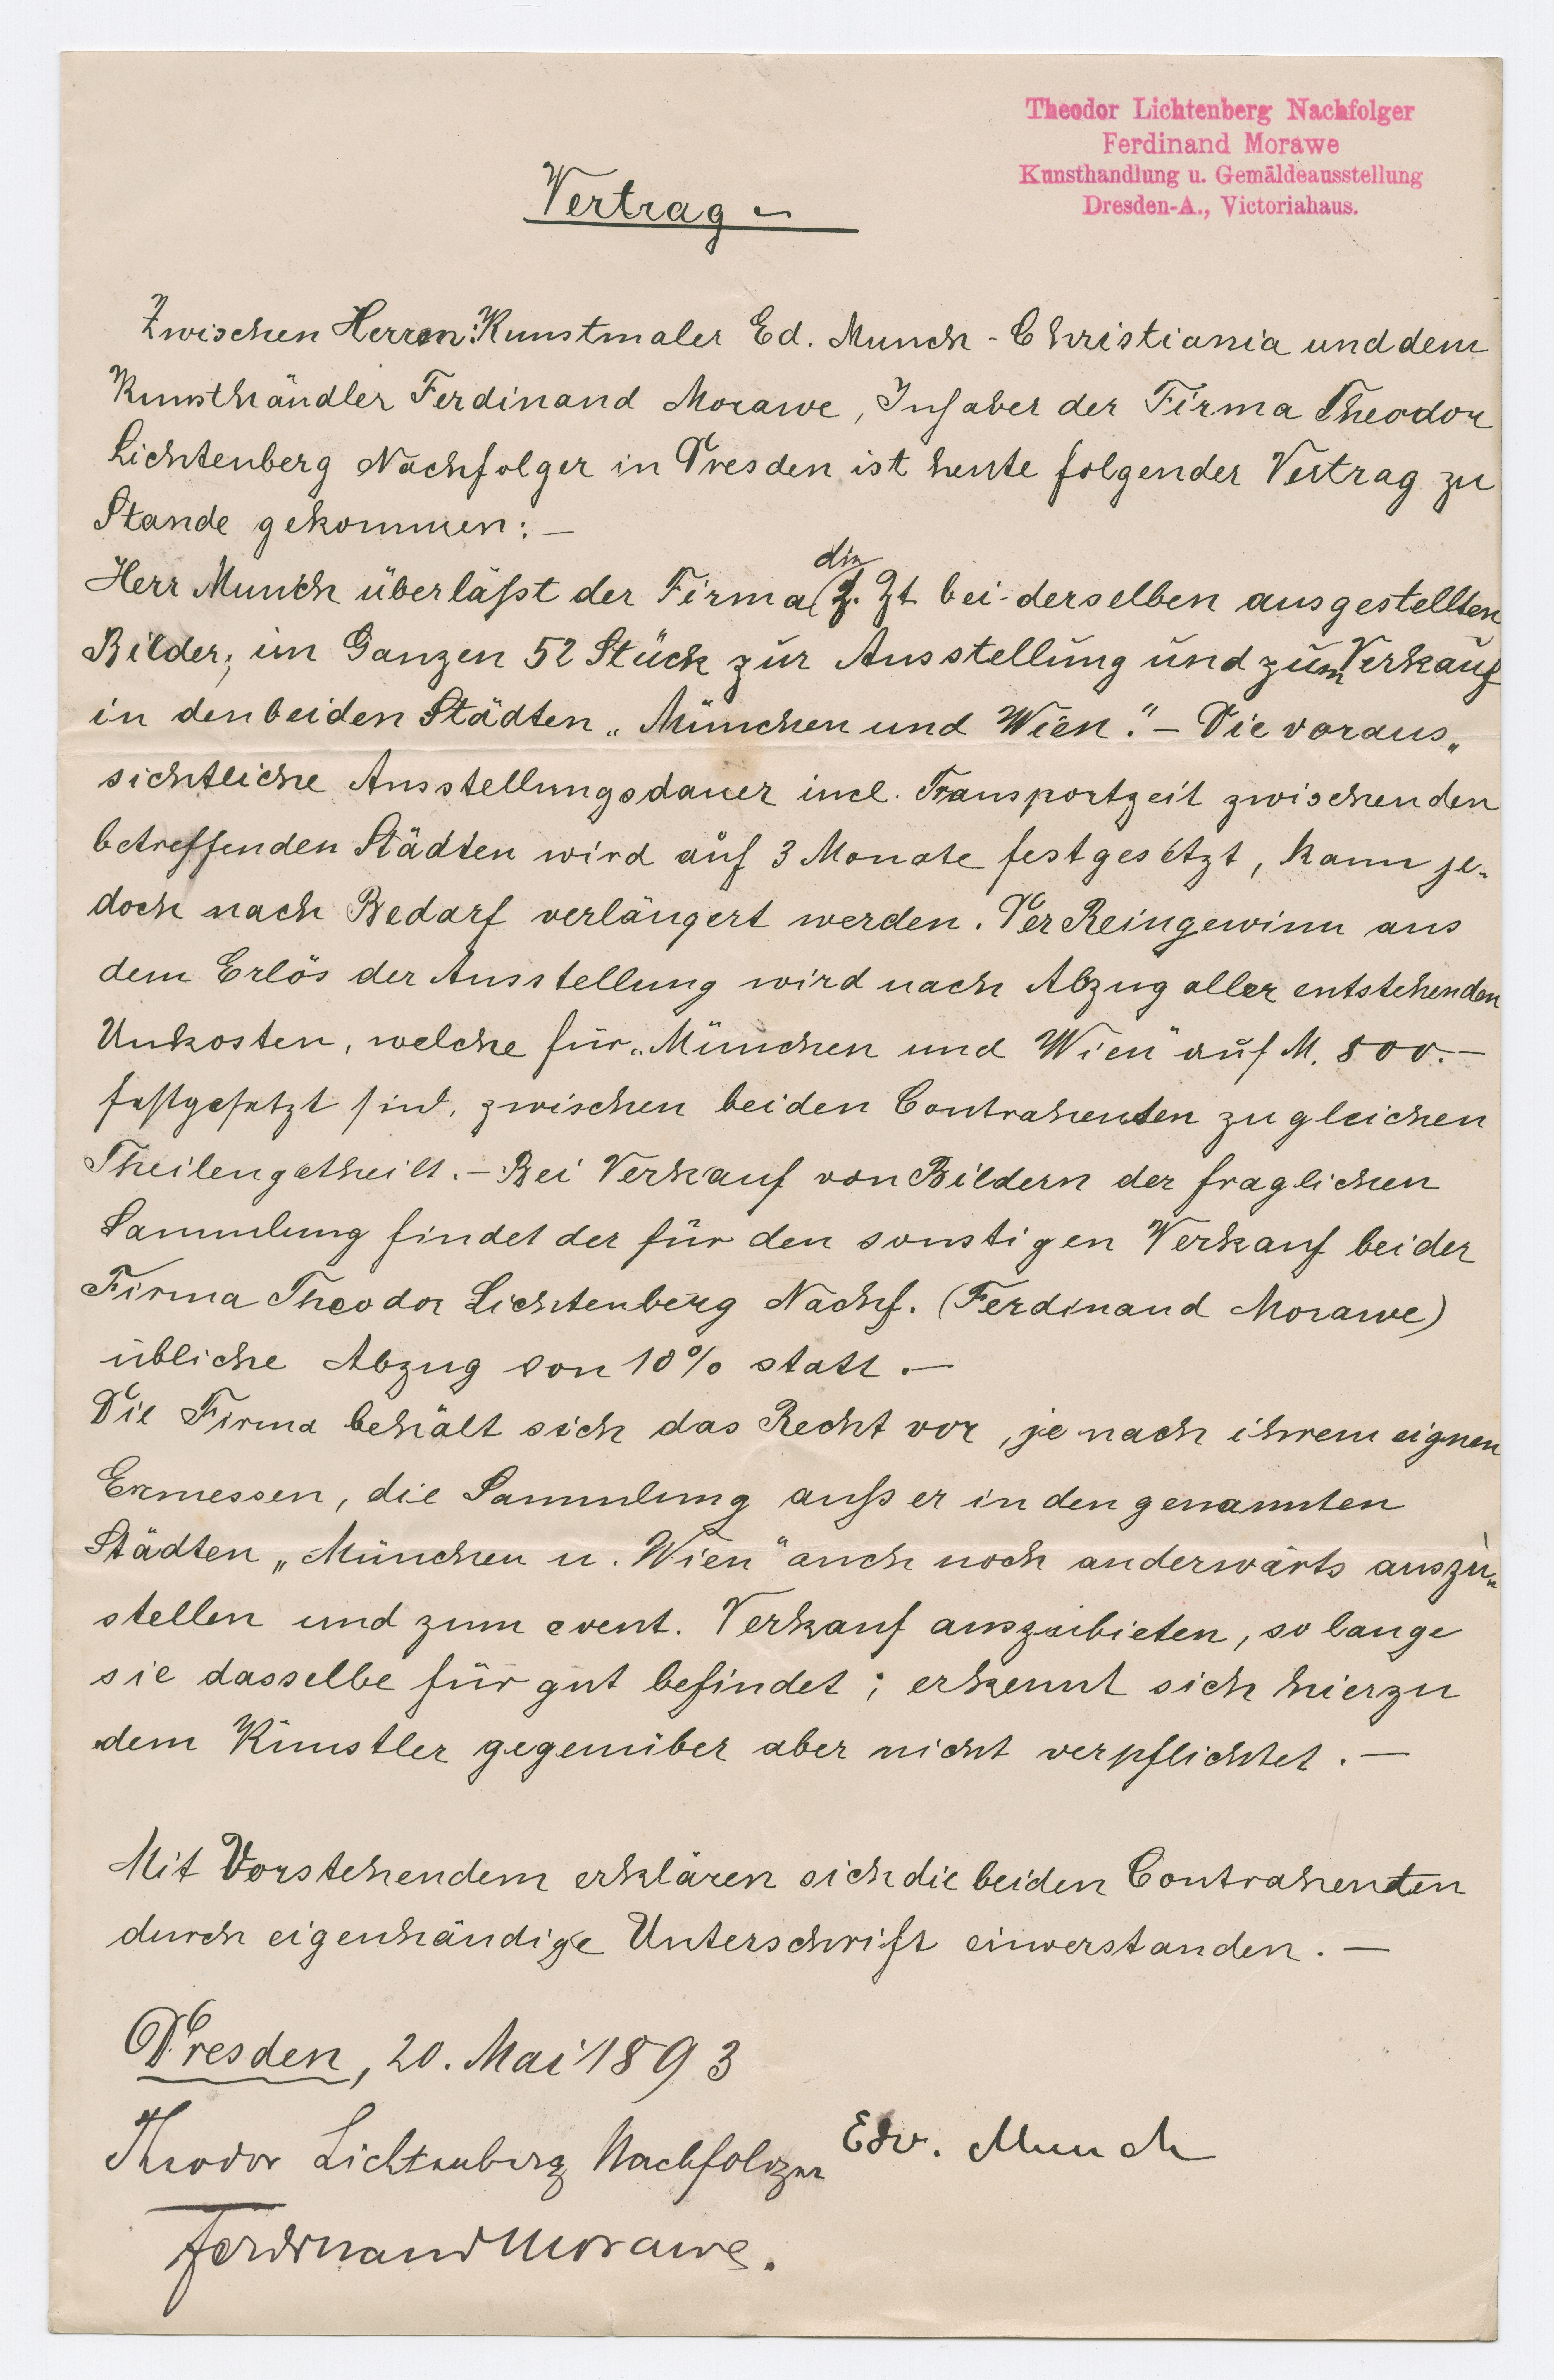 Theodor Lichtenberg Nachfolger
Ferdinand Morawe
Kunsthandlung u. Gemäldeausstellung
Dresden-A., Victoriahaus.
Vertrag –
Zwischen Herren: Kunstmaler Ed. Munch - Christiania und dem
Kunsthändler Ferdinand Morawe, Inhaber der Firma Theodor
Lichtenberg Nachfolger in Dresden ist heute folgender Vertrag zu
Stande gekommen: –
Herr Munch überläßt der Firma die z. Zt bei derselben ausgestellten
Bilder; im Ganzen 52 Stück zur Ausstellung und zum Verkauf
in den beiden Städten „München und Wien“. – Die voraus„
sichtliche Ausstellungsdauer incl. Transportzeit zwischen den
betreffenden Städten wird auf 3 Monate festgesetzt, kann je„
doch nach Bedarf verlängert werden. Der Reingewinn aus
dem Erlös der Ausstellung wird nach Abzug aller entstehenden
Unkosten, welche für „München und Wien“ auf M. 800. –
festgesetzt sind, zwischen beiden Contrahenten zu gleichen
Theilen getheilt. – Bei Verkauf von Bildern der fraglichen
Sammlung findet der für den sonstigen Verkauf bei der
Firma Theodor Lichtenberg Nachf. (Ferdinand Morawe)
übliche Abzug von 10% statt. –
Die Firma behält sich das Recht vor, je nach ihrem eignen
Ermessen, die Sammlung außer in den genannten
Städten „München u. Wien“ auch noch anderwärts auszu„
stellen und zum event. Verkauf auszubieten, so lange
sie dasselbe für gut befindet; erkennt sich hierzu
dem Künstler gegenüber aber nicht verpflichtet. –
Mit Vorstehendem erklären sich die beiden Contrahenten
durch eigenhändige Unterschrift einverstanden. –
Dresden, 20. Mai 1893
Theodor Lichtenberg Nachfolger Edv. Munch
Ferdinand Morawe.